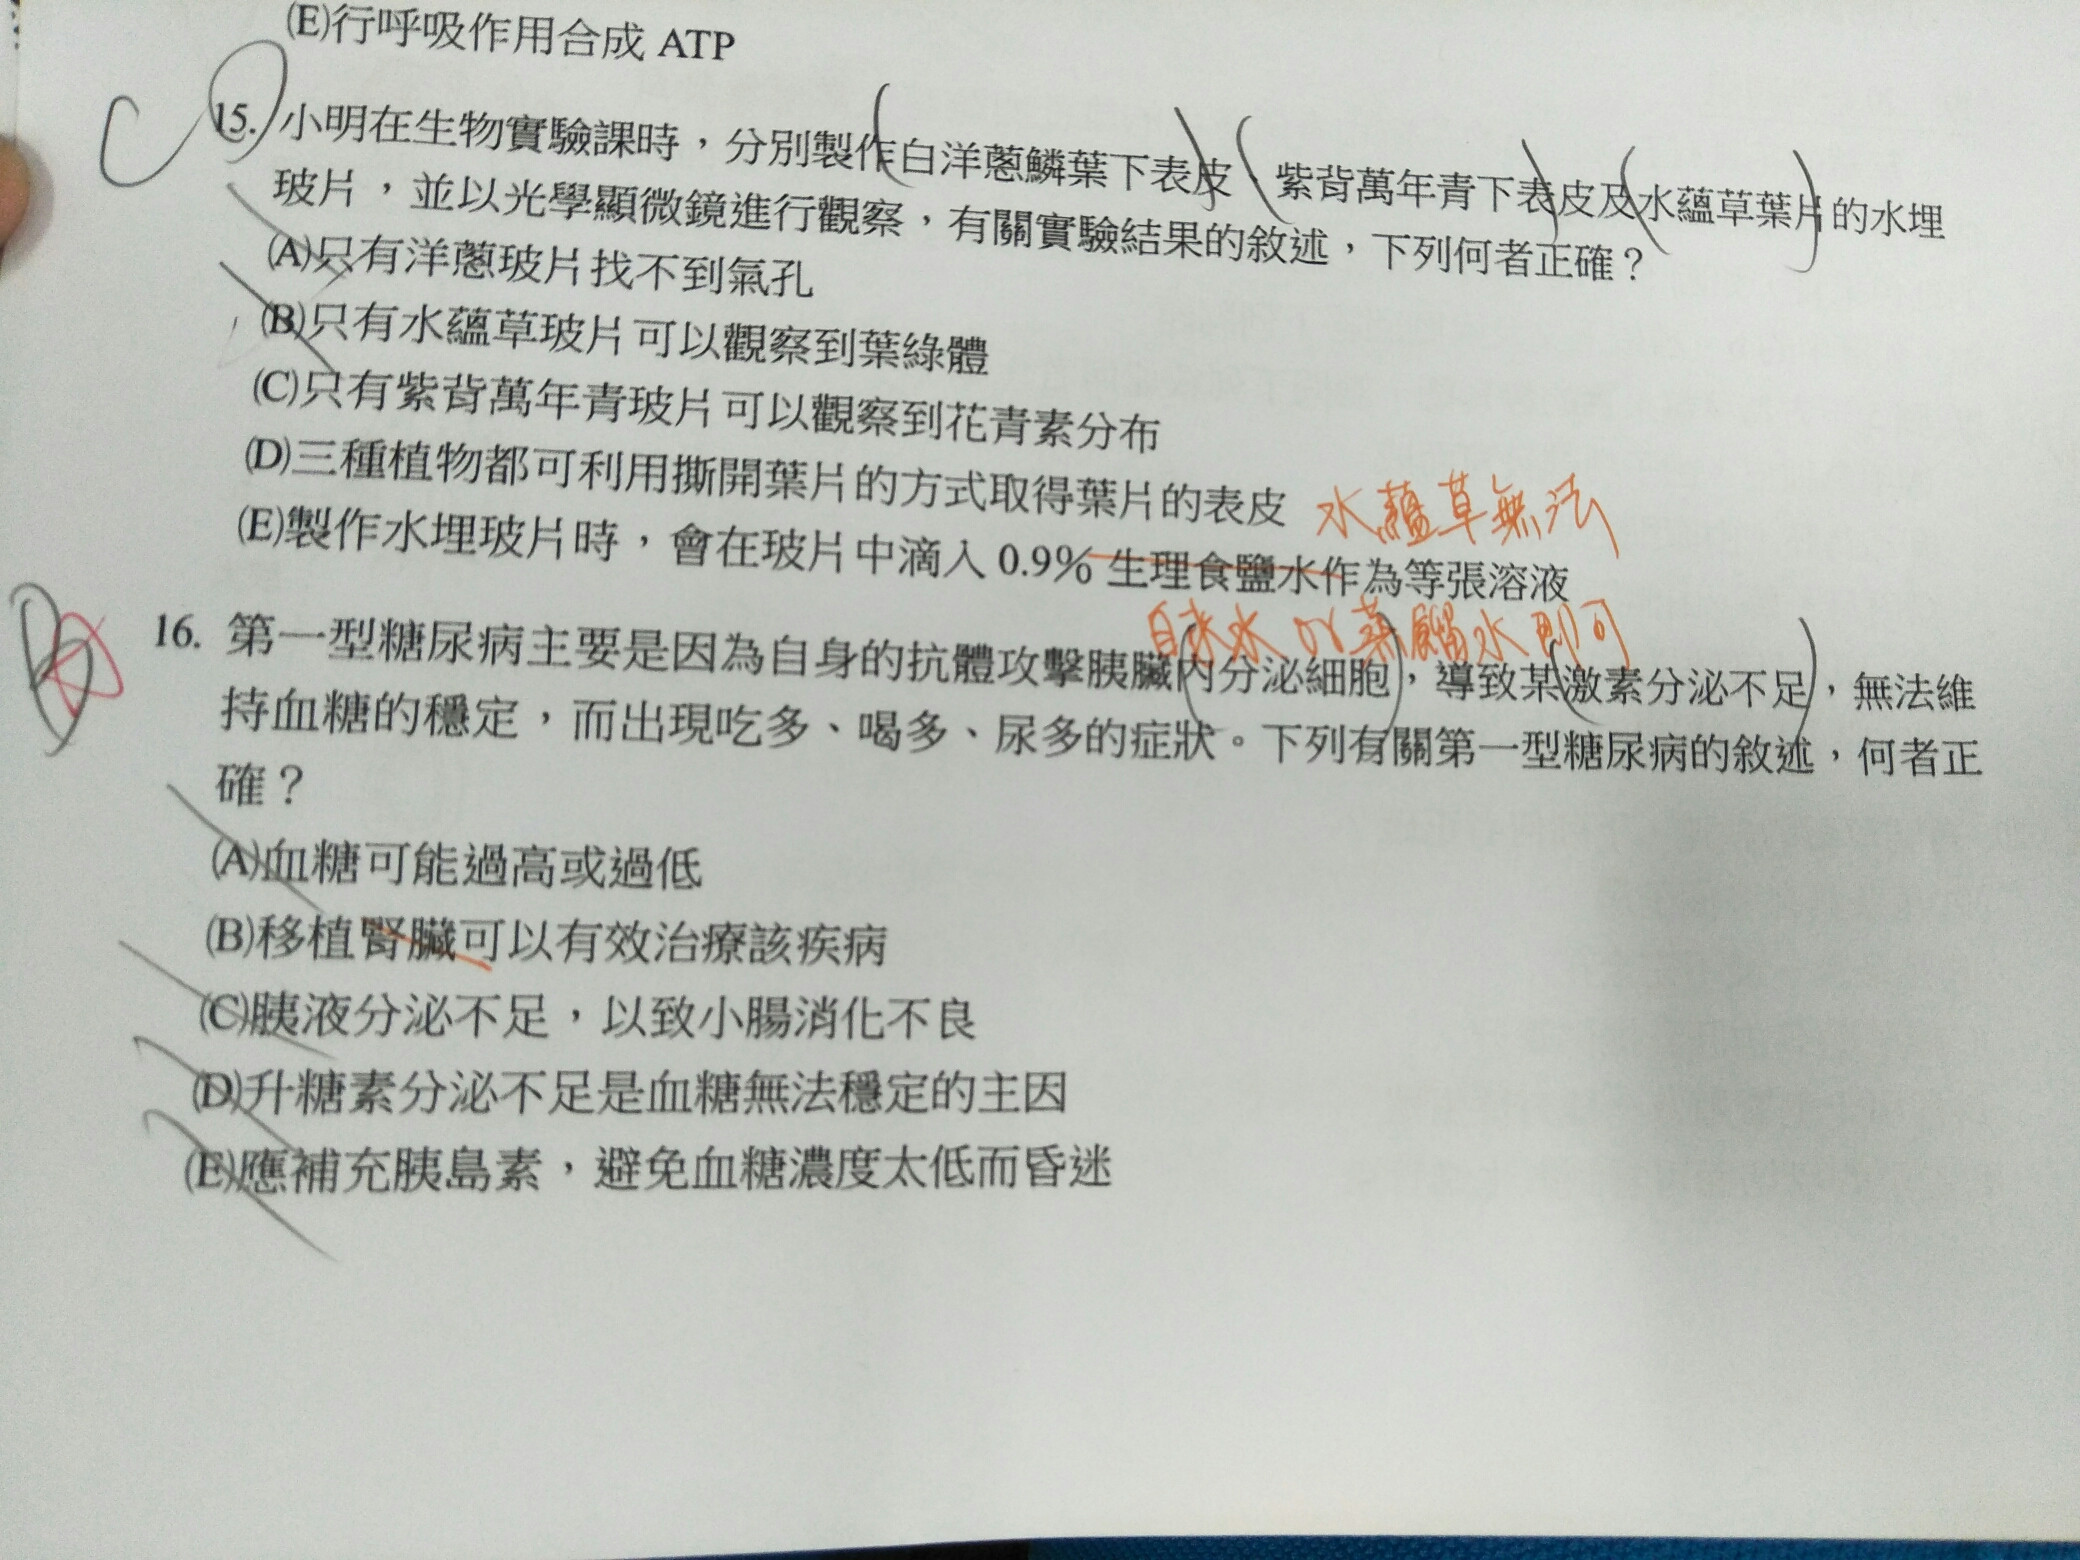 (E)行呼吸作用合成 ATP
C 15. 小明在生物實驗課時，分別製作白洋蔥鱗葉下表皮、紫背萬年青下表皮及水蘊草葉片的水埋
玻片，並以光學顯微鏡進行觀察，有關實驗結果的敘述，下列何者正確？
(A)只有洋蔥玻片找不到氣孔
(B)只有水蘊草玻片可以觀察到葉綠體
(C)只有紫背萬年青玻片可以觀察到花青素分布
(D)三種植物都可利用撕開葉片的方式取得葉片的表皮 水蘊草無法
(E)製作水埋玻片時，會在玻片中滴入 0.9% 生理食鹽水作為等張溶液
自來水 or 蒸餾水即可
16. 第一型糖尿病主要是因為自身的抗體攻擊胰臟內分泌細胞，導致某激素分泌不足，無法維
持血糖的穩定，而出現吃多、喝多、尿多的症狀。下列有關第一型糖尿病的敘述，何者正
確？
(A)血糖可能過高或過低
(B)移植腎臟可以有效治療該疾病
(C)胰液分泌不足，以致小腸消化不良
(D)升糖素分泌不足是血糖無法穩定的主因
(E)應補充胰島素，避免血糖濃度太低而昏迷